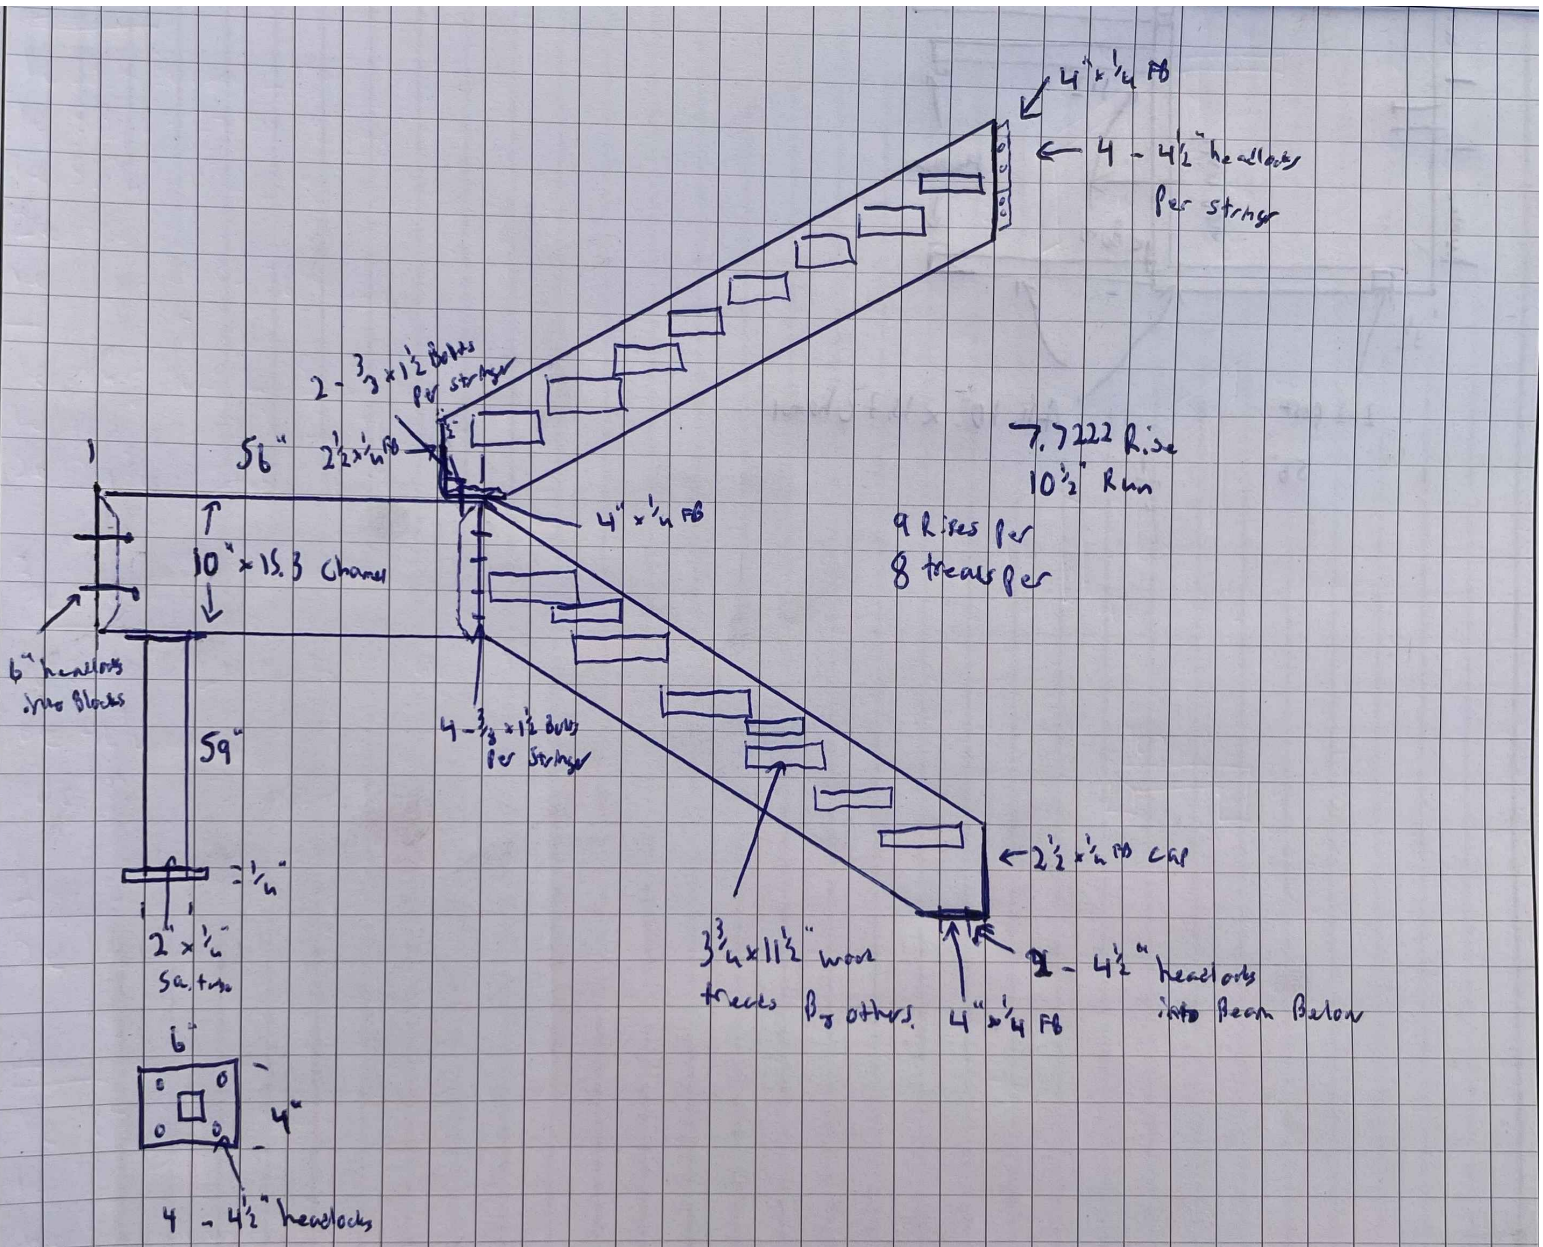 4" x 1/4 FB
4 - 4 1/2" headlocks
Per stringr
2 - 3/8 x 1 1/2 Bolts
Per stringr
56"
2 1/2 x 1/4 FB
7.7222 Rise
10 1/2" Run
4" x 1/4 FB
9 Rises Per
8 treads Per
10" x 15.3 Channel
6" headlocks
into Blocks
59"
4 - 3/8 x 1 1/2 Bolts
Per Stringr
2 1/2 x 1/4 FB cap
1/4"
2" x 1/4"
Sq. tube
3 3/4 x 11 1/2" wood
treads By others.
4" x 1/4 FB
- 4 1/2" headlocks
into Beam Below
6"
4"
4 - 4 1/2" headlocks